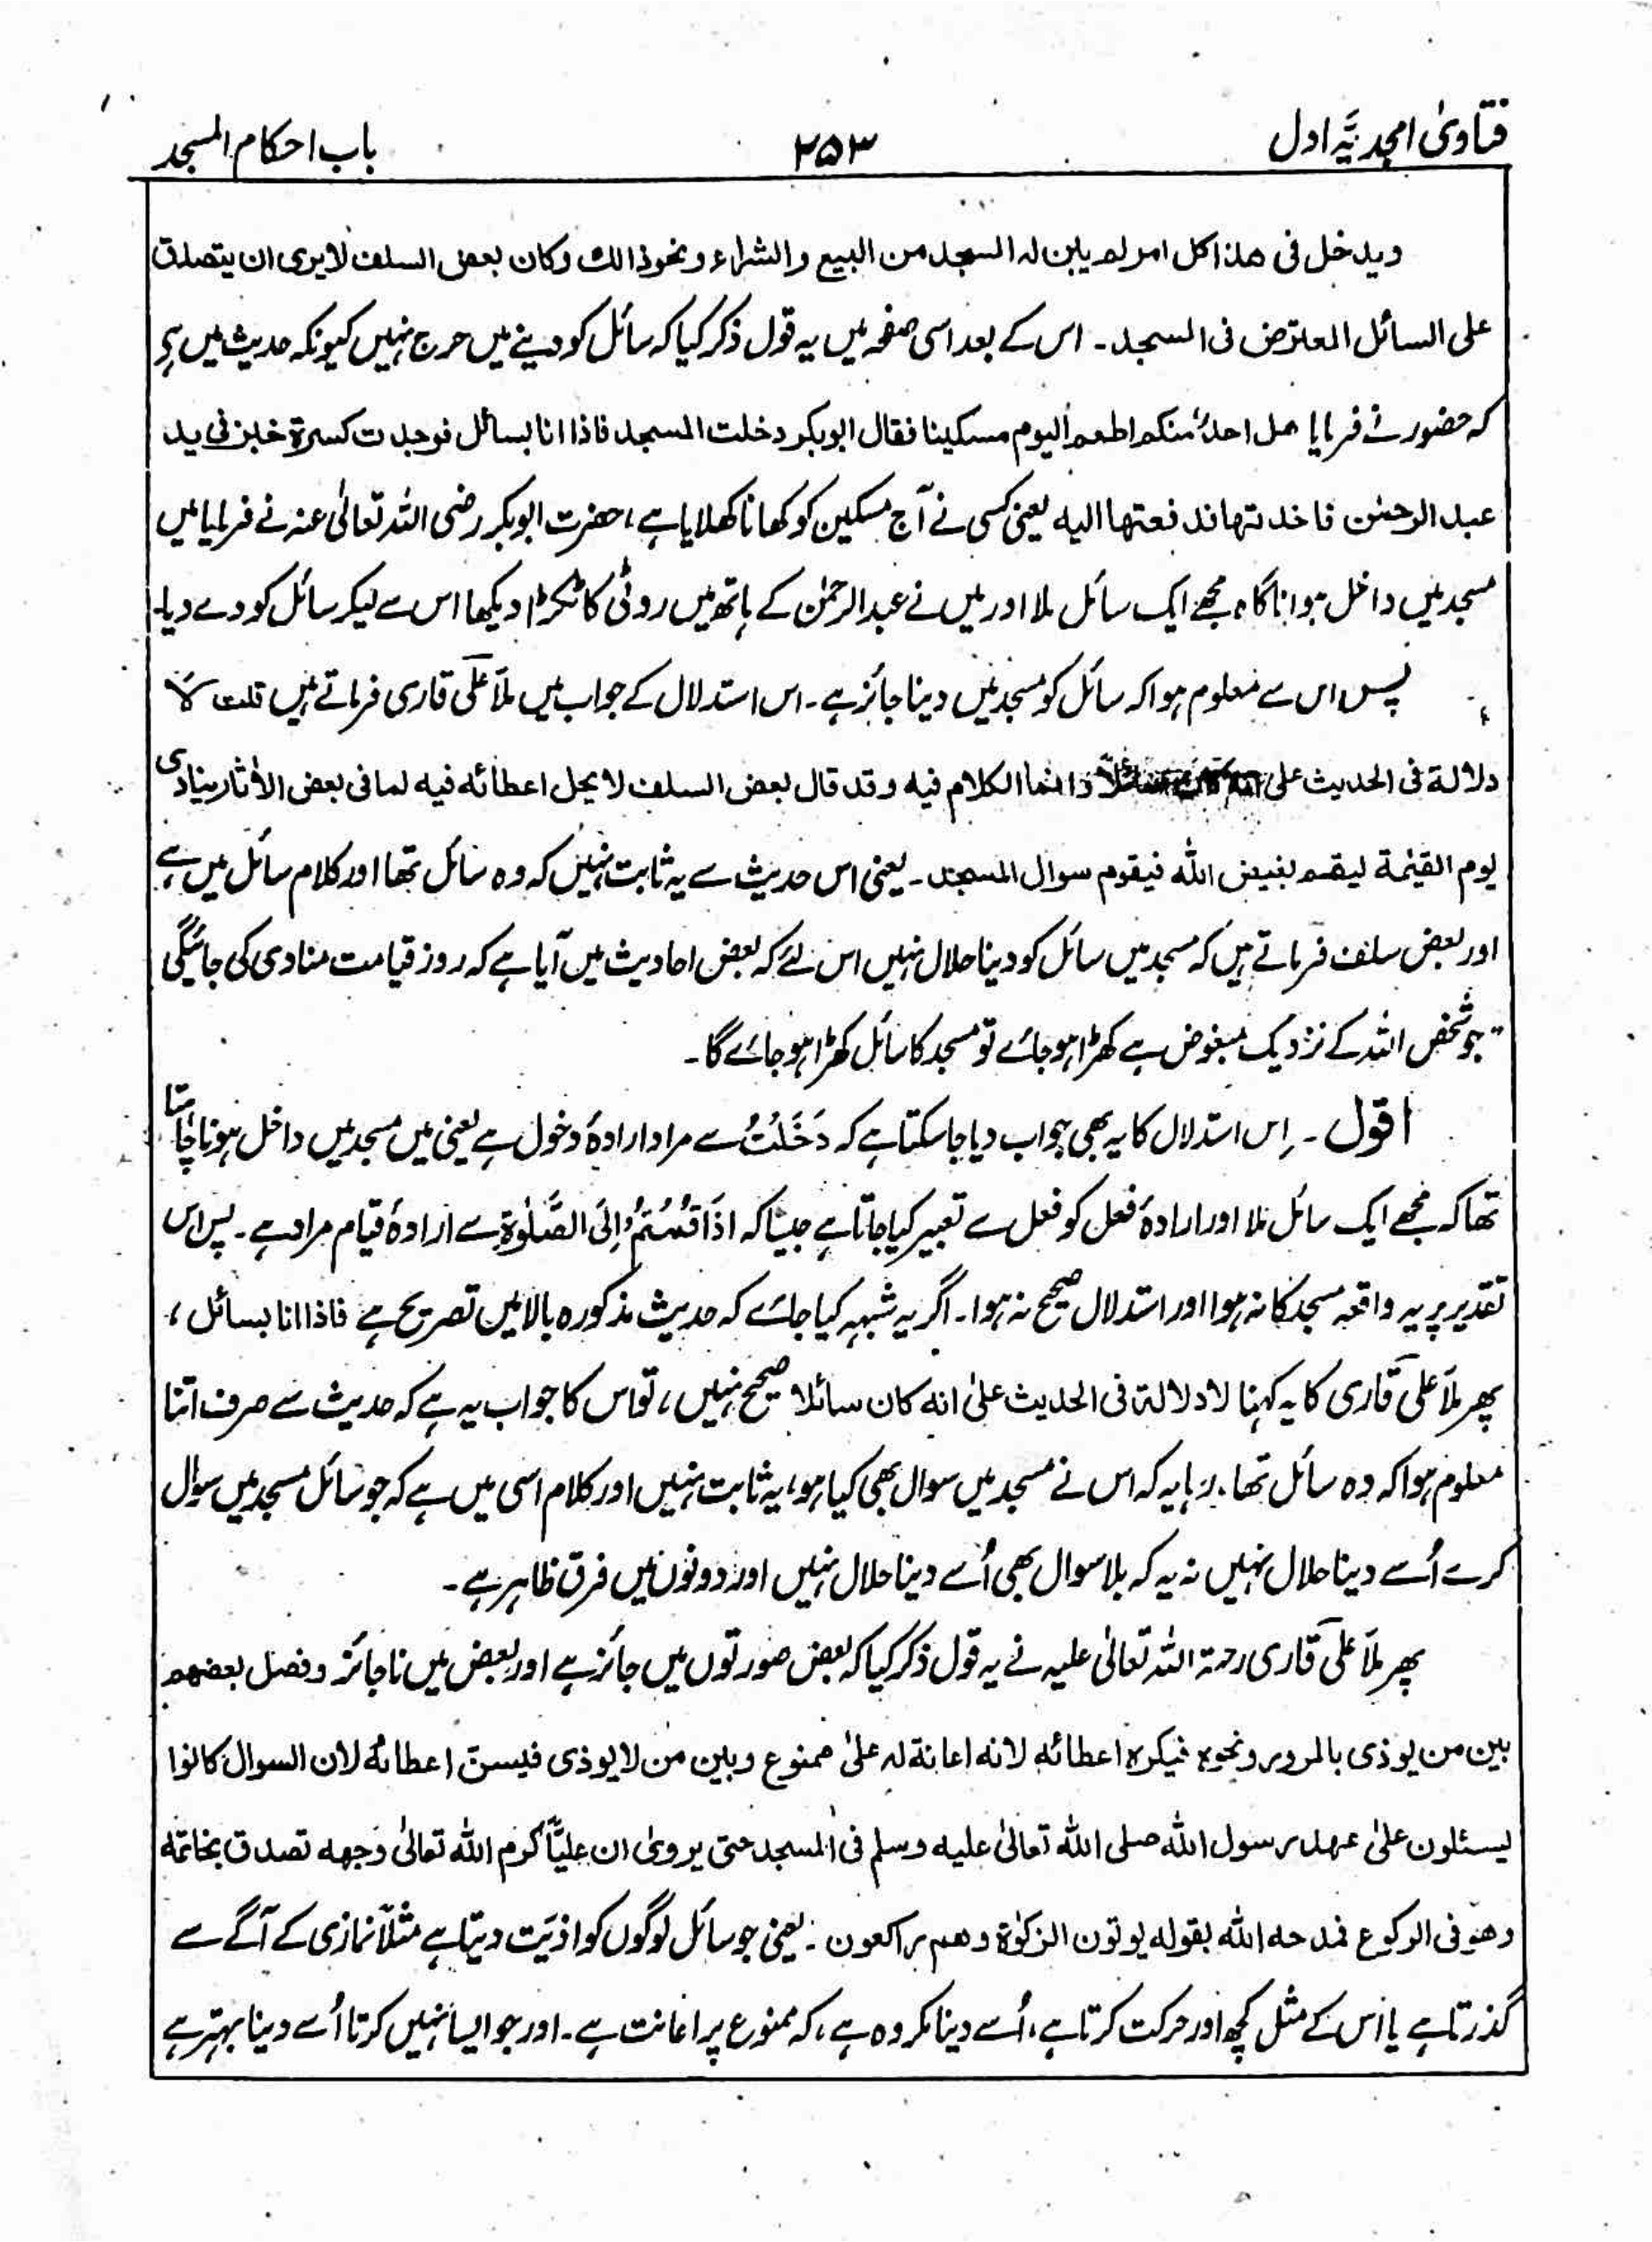 فتاویٰ امجدیّہ اول
۲۵۳
باب احکام المسجد
ویدخل فی ھذا کل امر لم یبن لہ المسجد من البیع والشراء ونحو ذالک وکان بعض السلف لایری ان یتصدق
علی السائل المعترض فی المسجد۔ اس کے بعد اسی صفحہ میں یہ قول ذکر کیا کہ سائل کو دینے میں حرج نہیں کیونکہ حدیث میں ہے
کہ حضور نے فرمایا ھل احدٌ منکم اطعم الیوم مسکینا فقال ابوبکر دخلت المسجد فاذا انا بسائل فوجدت کسرۃ خبز فی ید
عبد الرحمٰن فاخذتھا فدفعتھا الیہ یعنی کسی نے آج مسکین کو کھانا کھلایا ہے، حضرت ابوبکر رضی اللہ تعالیٰ عنہ نے فرمایا میں
مسجد میں داخل ہوا ناگاہ مجھے ایک سائل ملا اور میں نے عبدالرحمٰن کے ہاتھ میں روٹی کا ٹکڑا دیکھا اس سے لیکر سائل کو دے دیا۔
پس اس سے معلوم ہوا کہ سائل کو مسجد میں دینا جائز ہے۔ اس استدلال کے جواب میں ملّا علی قاری فرماتے ہیں قلت لا
دلالۃ فی الحدیث علی انہ کان سائلاً وانما الکلام فیہ وقد قال بعض السلف لا یحل اعطائہ فیہ لما فی بعض الاٰثار ینادی
یوم القیٰمۃ لیقم بغیض اللہ فیقوم سوال المسجد۔ یعنی اس حدیث سے یہ ثابت نہیں کہ وہ سائل تھا اور کلام سائل میں ہے
اور بعض سلف فرماتے ہیں کہ مسجد میں سائل کو دینا حلال نہیں اس لئے کہ بعض احادیث میں آیا ہے کہ روز قیامت منادی کی جائیگی
"جو شخص اللہ کے نزدیک مبغوض ہے کھڑا ہو جائے تو مسجد کا سائل کھڑا ہو جائے گا۔
اقول۔ اِس استدلال کا یہ بھی جواب دیا جاسکتا ہے کہ دَخَلْتُ سے مراد ارادۂ دخول ہے یعنی میں مسجد میں داخل ہونا چاہتا
تھا کہ مجھے ایک سائل ملا اور ارادۂ فعل کو فعل سے تعبیر کیا جاتا ہے جیسا کہ اذَا قُمْتُمْ اِلَی الصَّلٰوۃِ سے ارادۂ قیام مراد ہے۔ پس اس
تقدیر پر یہ واقعہ مسجد کا نہ ہوا اور استدلال صحیح نہ ہوا۔ اگر یہ شبہہ کیا جائے کہ حدیث مذکورہ بالا میں تصریح ہے فاذا انا بسائل،
پھر ملّا علی قاری کا یہ کہنا لا دلالۃ فی الحدیث علیٰ انہ کان سائلا صحیح نہیں، تو اس کا جواب یہ ہے کہ حدیث سے صرف اتنا
معلوم ہوا کہ وہ سائل تھا۔ رہا یہ کہ اس نے مسجد میں سوال بھی کیا ہو، یہ ثابت نہیں اور کلام اسی میں ہے کہ جو سائل مسجد میں سوال
کرے اُسے دینا حلال نہیں نہ یہ کہ بلا سوال بھی اُسے دینا حلال نہیں اور دونوں میں فرق ظاہر ہے۔
پھر ملّا علی قاری رحمۃ اللہ تعالیٰ علیہ نے یہ قول ذکر کیا کہ بعض صورتوں میں جائز ہے اور بعض میں ناجائز وفصل بعضھم
بین من یوذی بالمرور ونحوہ فیکرہ اعطائہ لانہ اعانۃ لہ علیٰ ممنوع وبین من لا یوذی فیسن اعطائہ لان السوال کانوا
یسئلون علیٰ عہد رسول اللہ صلی اللہ تعالیٰ علیہ وسلم فی المسجد حتی یرویٰ ان علیّاً کرم اللہ تعالیٰ وجھہ تصدق بخاتمہ
وھو فی الرکوع فمدحہ اللہ بقولہ یوتون الزکوٰۃ وھم راکعون۔ یعنی جو سائل لوگوں کو اذیت دیتا ہے مثلاً نمازی کے آگے سے
گذرتا ہے یا اس کے مثل کچھ اور حرکت کرتا ہے، اُسے دینا مکروہ ہے، کہ ممنوع پر اعانت ہے۔ اور جو ایسا نہیں کرتا اُسے دینا بہتر ہے